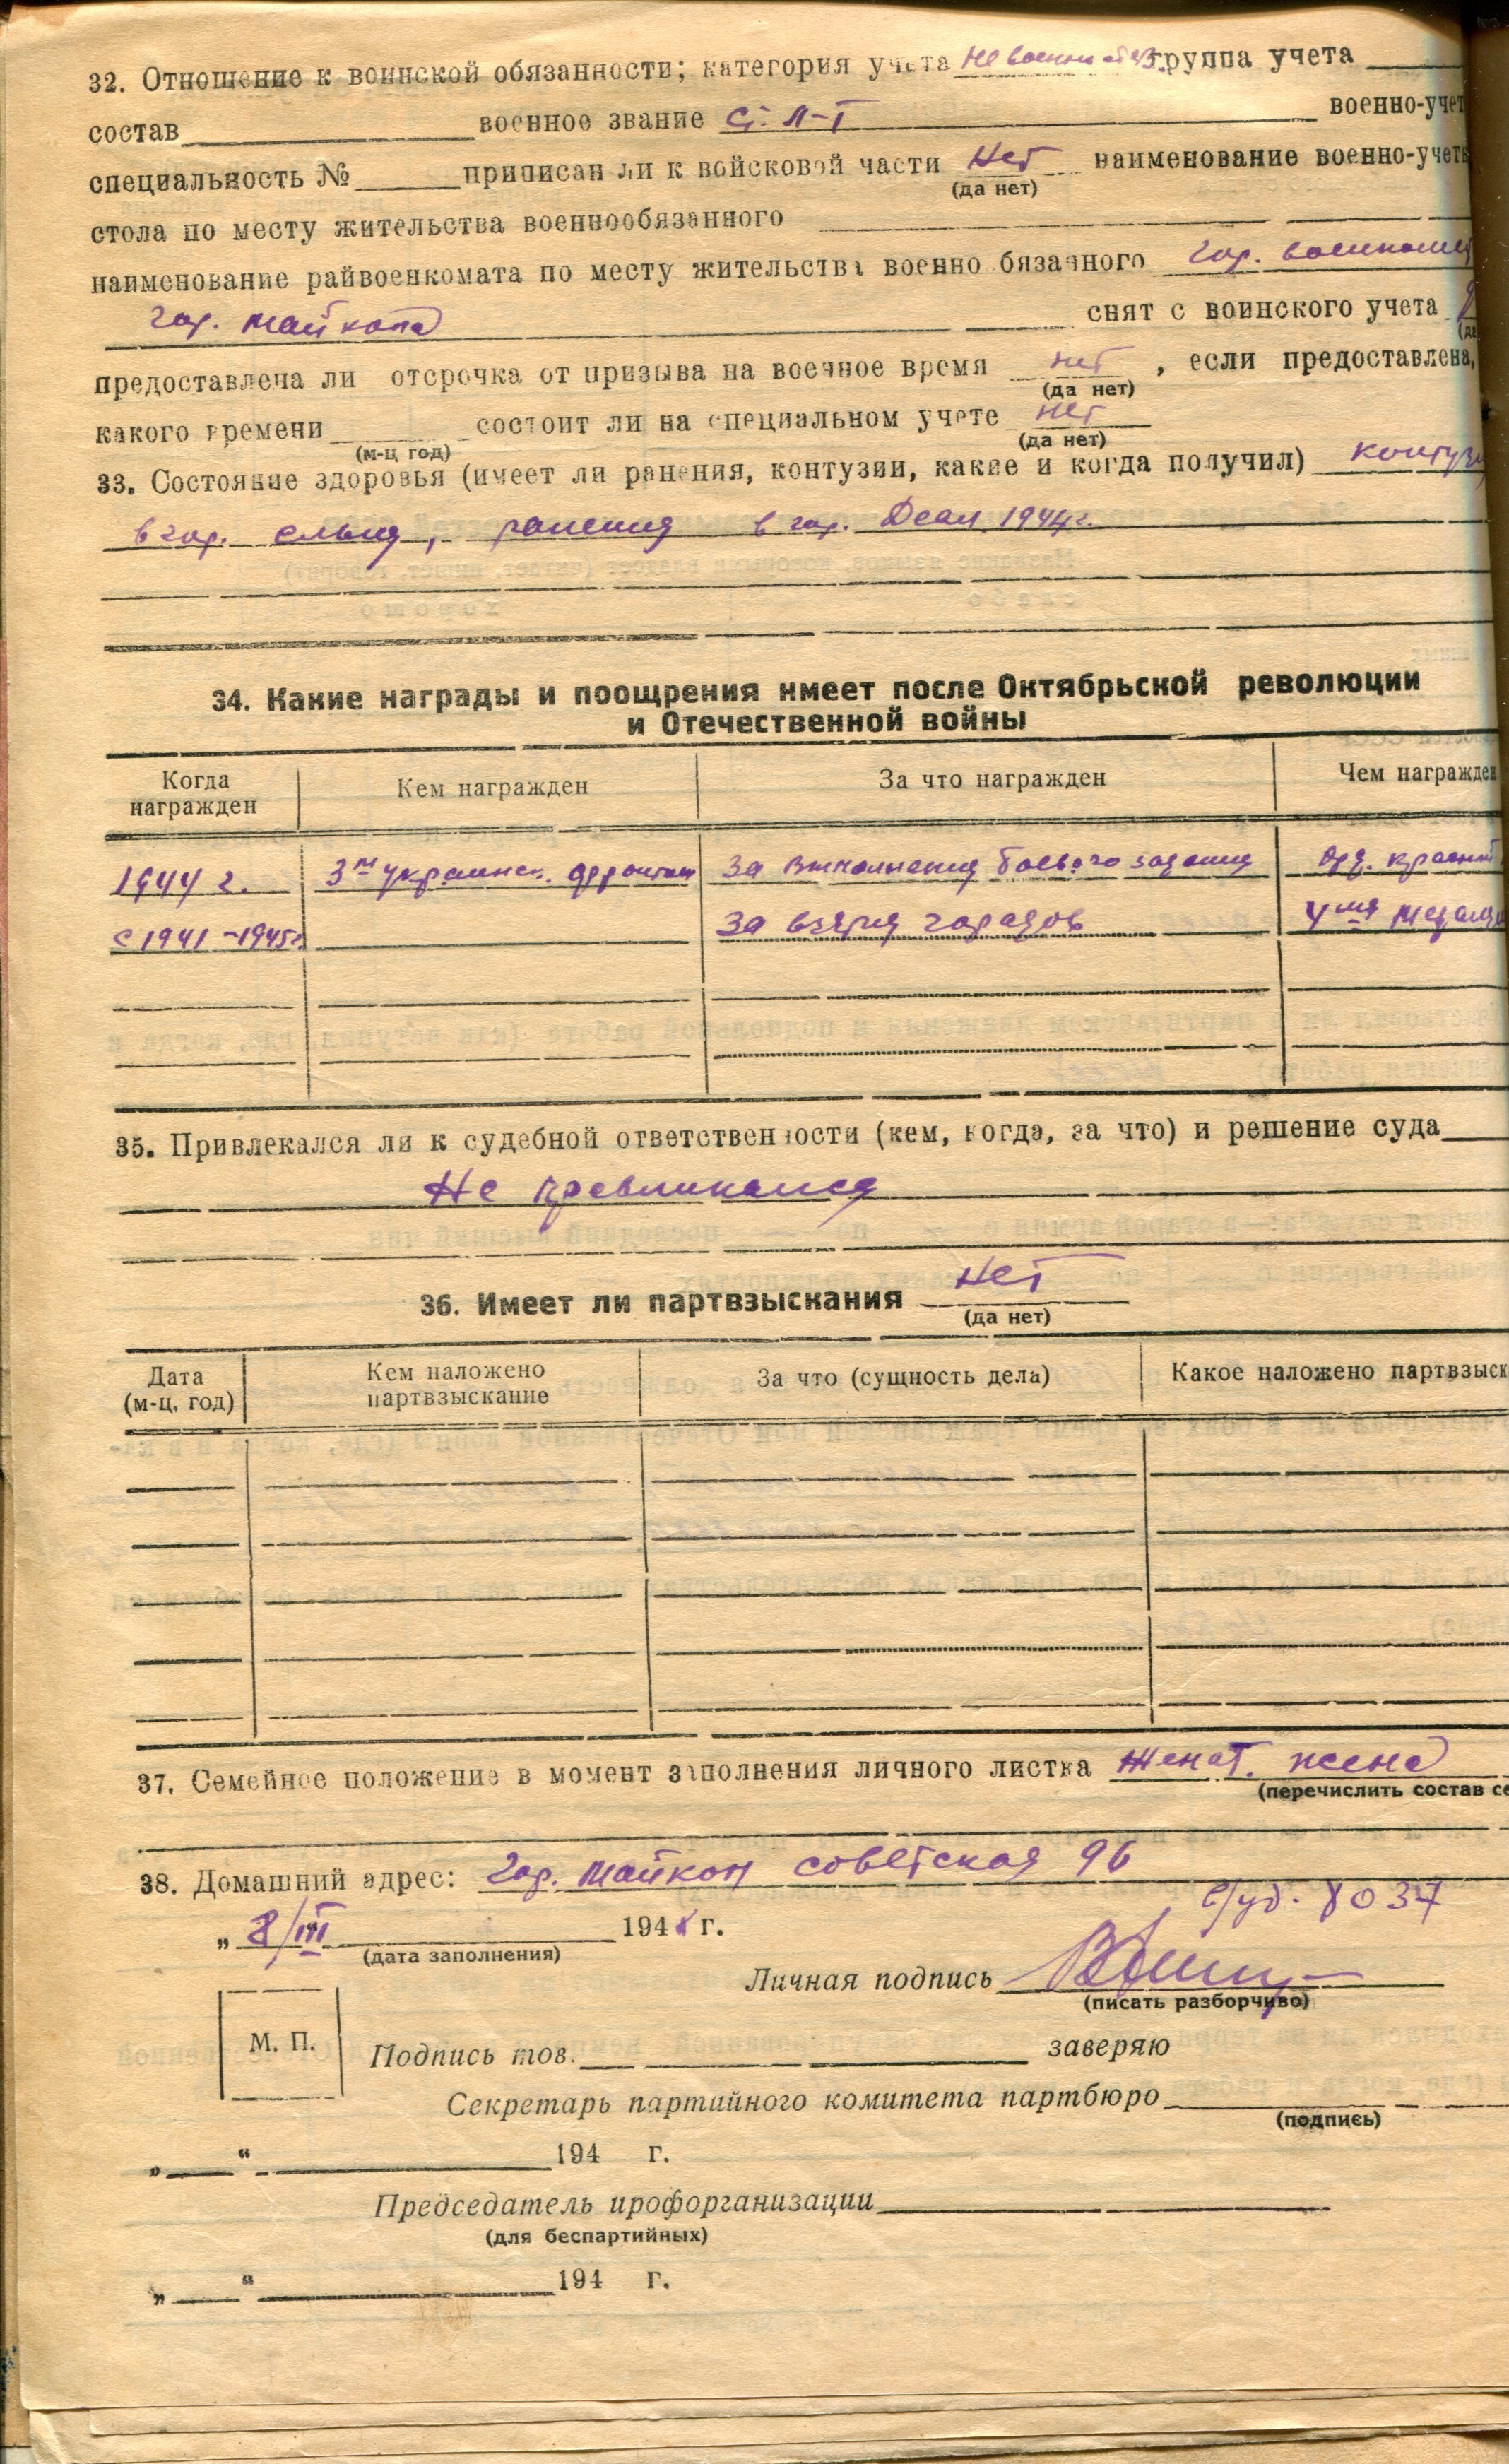 32. Отношение к воинской обязанности; категория учета группа учета
состав военное звание Ст. Л-т военно-учет
специальность № приписан ли к войсковой части Нет наименование военно-учетн
(да нет)
стола по месту жительства военнообязанного
наименование райвоенкомата по месту жительства военнобязанного гор. военкомат
гор. Майкопа снят с воинского учета
(да
предоставлена ли отсрочка от призыва на военное время нет, если предоставлена,
(да нет)
какого времени состоит ли на специальном учете нет
(м-ц год) (да нет)
33. Состояние здоровья (имеет ли ранения, контузии, какие и когда получил) контузи
в гор. ельня, ранения в гор. 1944 г.
34. Какие награды и поощрения имеет после Октябрьской революции
и Отечественной войны
Когда награжден Кем награжден За что награжден Чем награжден
1944 г. 3м украинск. фронтом За выполнения боевого задания Орд. красной
с 1941-1945г За взятия городов 4мя медаля
35. Привлекался ли к судебной ответственности (кем, когда, за что) и решение суда
Не превликался
36. Имеет ли партвзыскания Нет
(да нет)
Дата (м-ц, год) Кем наложено партвзыскание За что (сущность дела) Какое наложено партвзыск
37. Семейное положение в момент заполнения личного листка Женат. жена
(перечислить состав се
38. Домашний адрес: гор. Майкоп советская 96
с/уд. 8037
„ 8/III 1948 г.
(дата заполнения)
Личная подпись
(писать разборчиво)
М. П.
Подпись тов. заверяю
Секретарь партийного комитета партбюро
(подпись)
„ “ 194 г.
Председатель профорганизации
(для беспартийных)
„ “ 194 г.